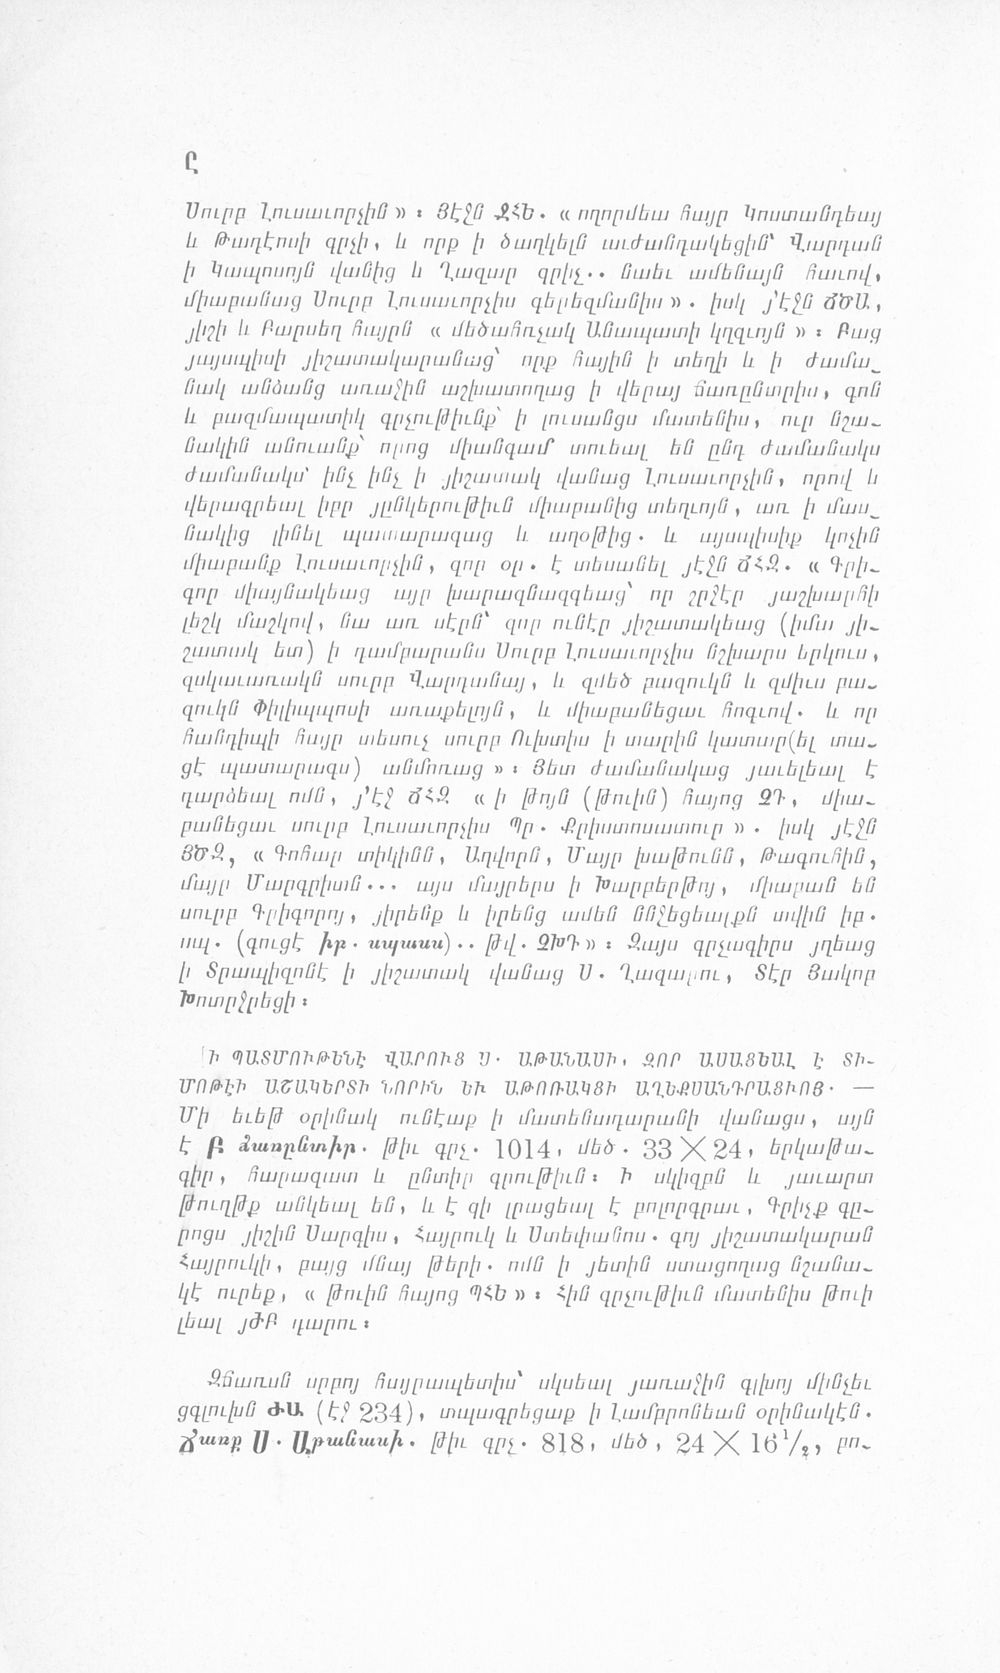 Ը
Սուրբ Լուսաւորչին» ։ Յէջն ՁՀԵ. «ողորմեա հայր Կոստանդեայ
և Թադէոսի գրչի, և որք ի ծաղկելն աւժանդակեցին՝ Վարդան
ի Կապոսոյն վանից և Ղազար գրիչ.. նաեւ ամենայն հաւով,
միաբանաց Սուրբ Լուսաւորչիս գերեզմանիս». իսկ յ՚էջն ՃԾԱ,
յիշի և Բարսեղ հայրն «մեծահռչակ Անապատի կղզւոյն» ։ Բաց
յայսպիսի յիշատակարանաց՝ որք հային ի տեղի և ի ժամա_
նակ անձանց առաջին աշխատողաց ի վերայ ճառընտրիս, գոն
և բազմապատիկ գրչութիւնք՝ ի լուսանցս մատենիս, ուր նշա֊
նակին անուանք՝ որոց միանգամ տուեալ են ընդ ժամանակս
ժամանակս՝ ինչ ինչ ի յիշատակ վանաց Լուսաւորչին, որով և
վերագրեալ իբր յընկերութիւն միաբանից տեղւոյն, առ ի մաս_
նակից լինել պատարագաց և աղօթից. և այսպիսիք կոչին
միաբանք Լուսաւորչին, զոր օր. է տեսանել յէջն ՃՀԶ. «Գրի֊
գոր միայնակեաց այր խարազնազգեաց՝ որ շրջէր յաշխարհի
լեշկ մաշկով, նա առ սէրն՝ զոր ունէր յիշատակեաց (իմա յի֊
շատակ ետ) ի դամբարանս Սուրբ Լուսաւորչիս նշխարս երկուս,
զսկաւառակն սուրբ Վարդանայ, և զմեծ բազուկն և զմիւս բա֊
զուկն Փիլիպպոսի առաքելոյն, և միաբանեցաւ հոգւով. և որ
հանդիպի հայր տեսուչ սուրբ Ուխտիս ի տարին կատար(ել տա֊
ցէ պատարագս) անմոռաց» ։ Յետ ժամանակաց յաւելեալ է
դարձեալ ոմն, յ՚էջ ՃՀԶ «ի թոյն (թուին) հայոց ՋԴ, միա֊
բանեցաւ սուրբ Լուսաւորչիս Պր. Քրիստոսատուր». իսկ յէջն
ՅԾԶ, «Գոհար տիկինն, Աղվորն, Մայր խաթունն, Թագուհին,
մայր Մարգրիտն... այս մայրերս ի Խարբերթոյ, միաբան են
սուրբ Գրիգորոյ, յիրենք և իրենց ամեն ննջեցեալքն տվին իբ.
սպ. (գուցէ իբ. սպասս).. թվ. ՋԽԴ» ։ Զայս գրչագիրս յղեաց
ի Տրապիզոնէ ի յիշատակ վանաց Ս. Ղազարու, Տէր Յակոբ
Խոտրջրեցի ։
Ի ՊԱՏՄՈՒԹԵՆԷ ՎԱՐՈՒՑ Ս. ԱԹԱՆԱՍԻ, ԶՈՐ ԱՍԱՑԵԱԼ Է ՏԻ֊
ՄՈԹԷԻ ԱՇԱԿԵՐՏԻ ՆՈՐԻՆ ԵՒ ԱԹՈՌԱԿՑԻ ԱՂԵՔՍԱՆԴՐԱՑԻՈՅ. —
Մի եւեթ օրինակ ունէաք ի մատենադարանի վանացս, այն
է Բ ձառընտիր. թիւ գրչ. 1014, մեծ. 33 X 24, երկաթա֊
գիր, հարազատ և ընտիր գրութիւն։ Ի սկիզբն և յաւարտ
թուղթք անկեալ են, և է զի լրացեալ է բոլորգրաւ, Գրիչք գը֊
րոցս յիշին Սարգիս, Հայրուկ և Ստեփանոս. գոյ յիշատակարան
Հայրուկի, բայց մնայ թերի. ոմն ի յետին ստացողաց նշանա֊
կէ ուրեք, «թուին հայոց ՊՀԵ» ։ Հին գրչութիւն մատենիս թուի
լեալ յԺԲ դարու ։
Զճառսն սրբոյ հայրապետիս՝ սկսեալ յառաջին գլխոյ մինչեւ
ցգլուխն ԺԱ (էջ 234), տպագրեցաք ի Լամբրոնեան օրինակէն.
Ճառք Ս. Աթանասի. թիւ գրչ. 818, մեծ, 24 X 16 1/2, բո֊